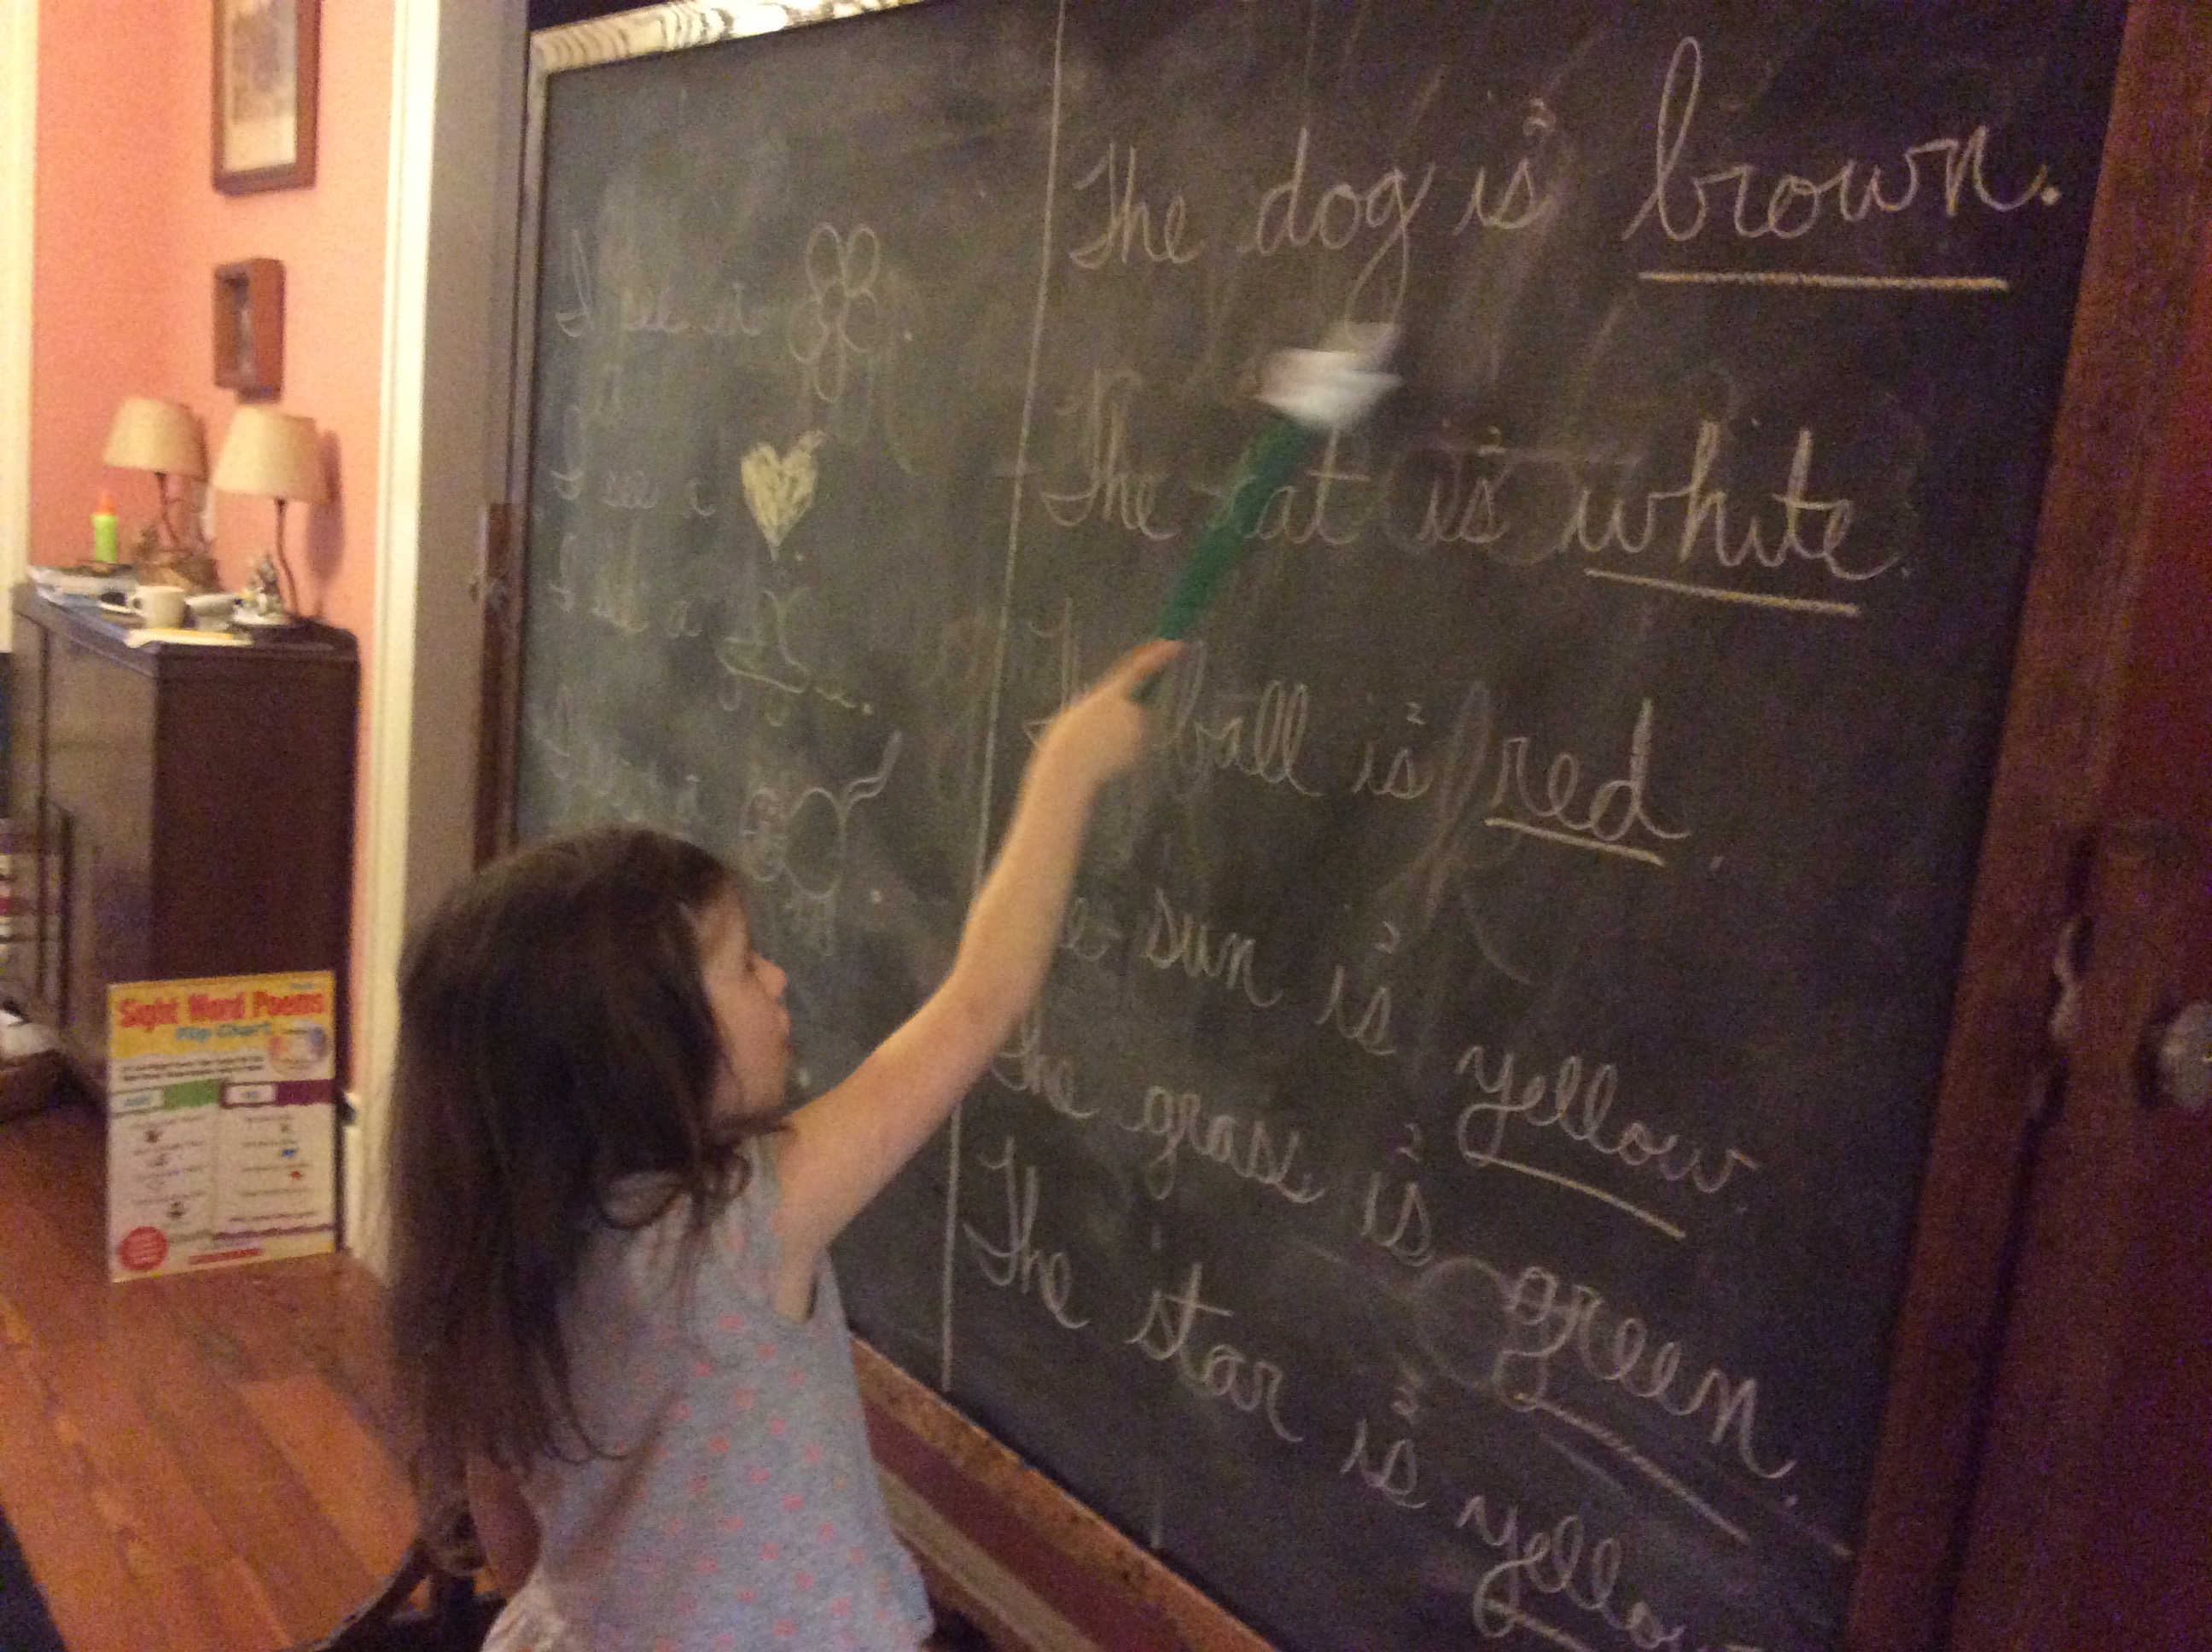 I see a
I see a
I see a
The dog is² brown.
The cat is² white.
ball is² red.
sun is² yellow
The grass is² green.
The star is² yellow
Sight Word Poems
Flip Chart